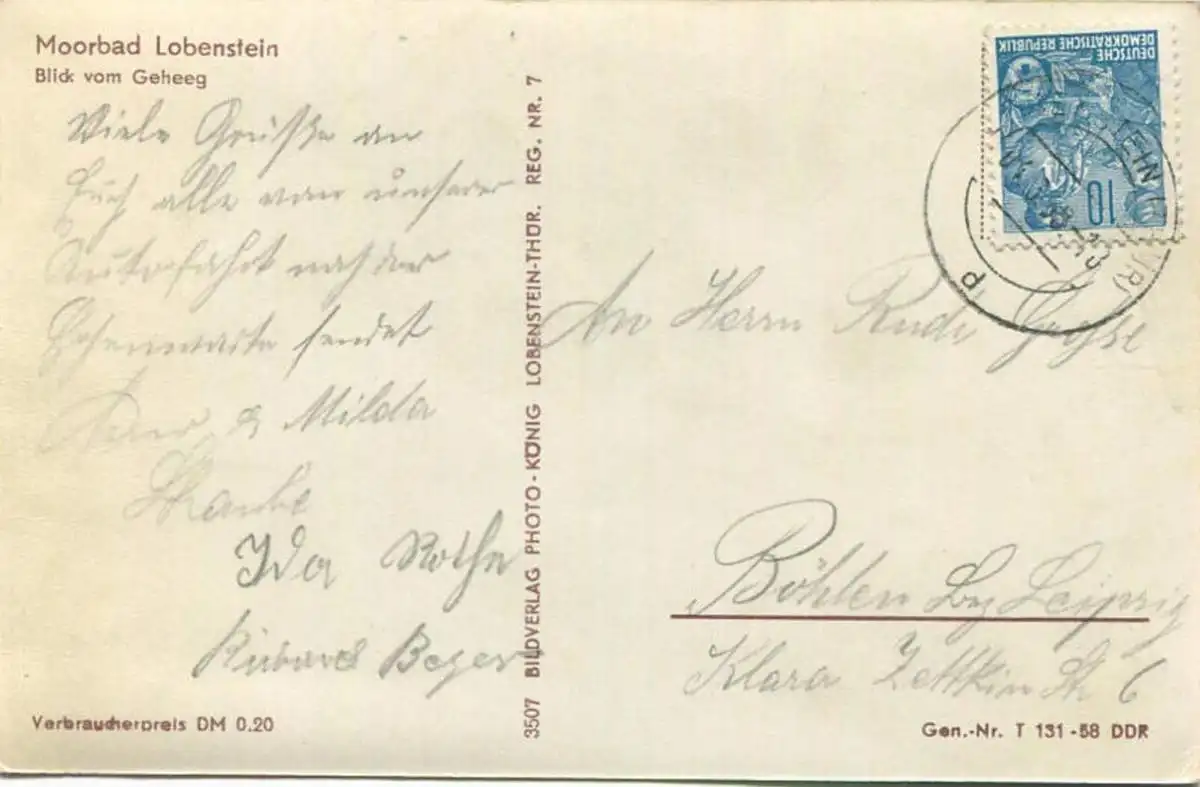 Moorbad Lobenstein
Blick vom Geheeg
Viele Grüße an
Euch alle von unserer
Autofahrt nach der
Hohenwarte sendet
& Milda
Ida Rothe
Beyer
Verbraucherpreis DM 0.20
3507 BILDVERLAG PHOTO-KÖNIG LOBENSTEIN-THÜR. REG. NR. 7
DEUTSCHE
DEMOKRATISCHE REPUBLIK
10
An Herrn Rudi Große
Böhlen bz Leipzig
Klara Zettkin Str 6
Gen.-Nr. T 131-58 DDR